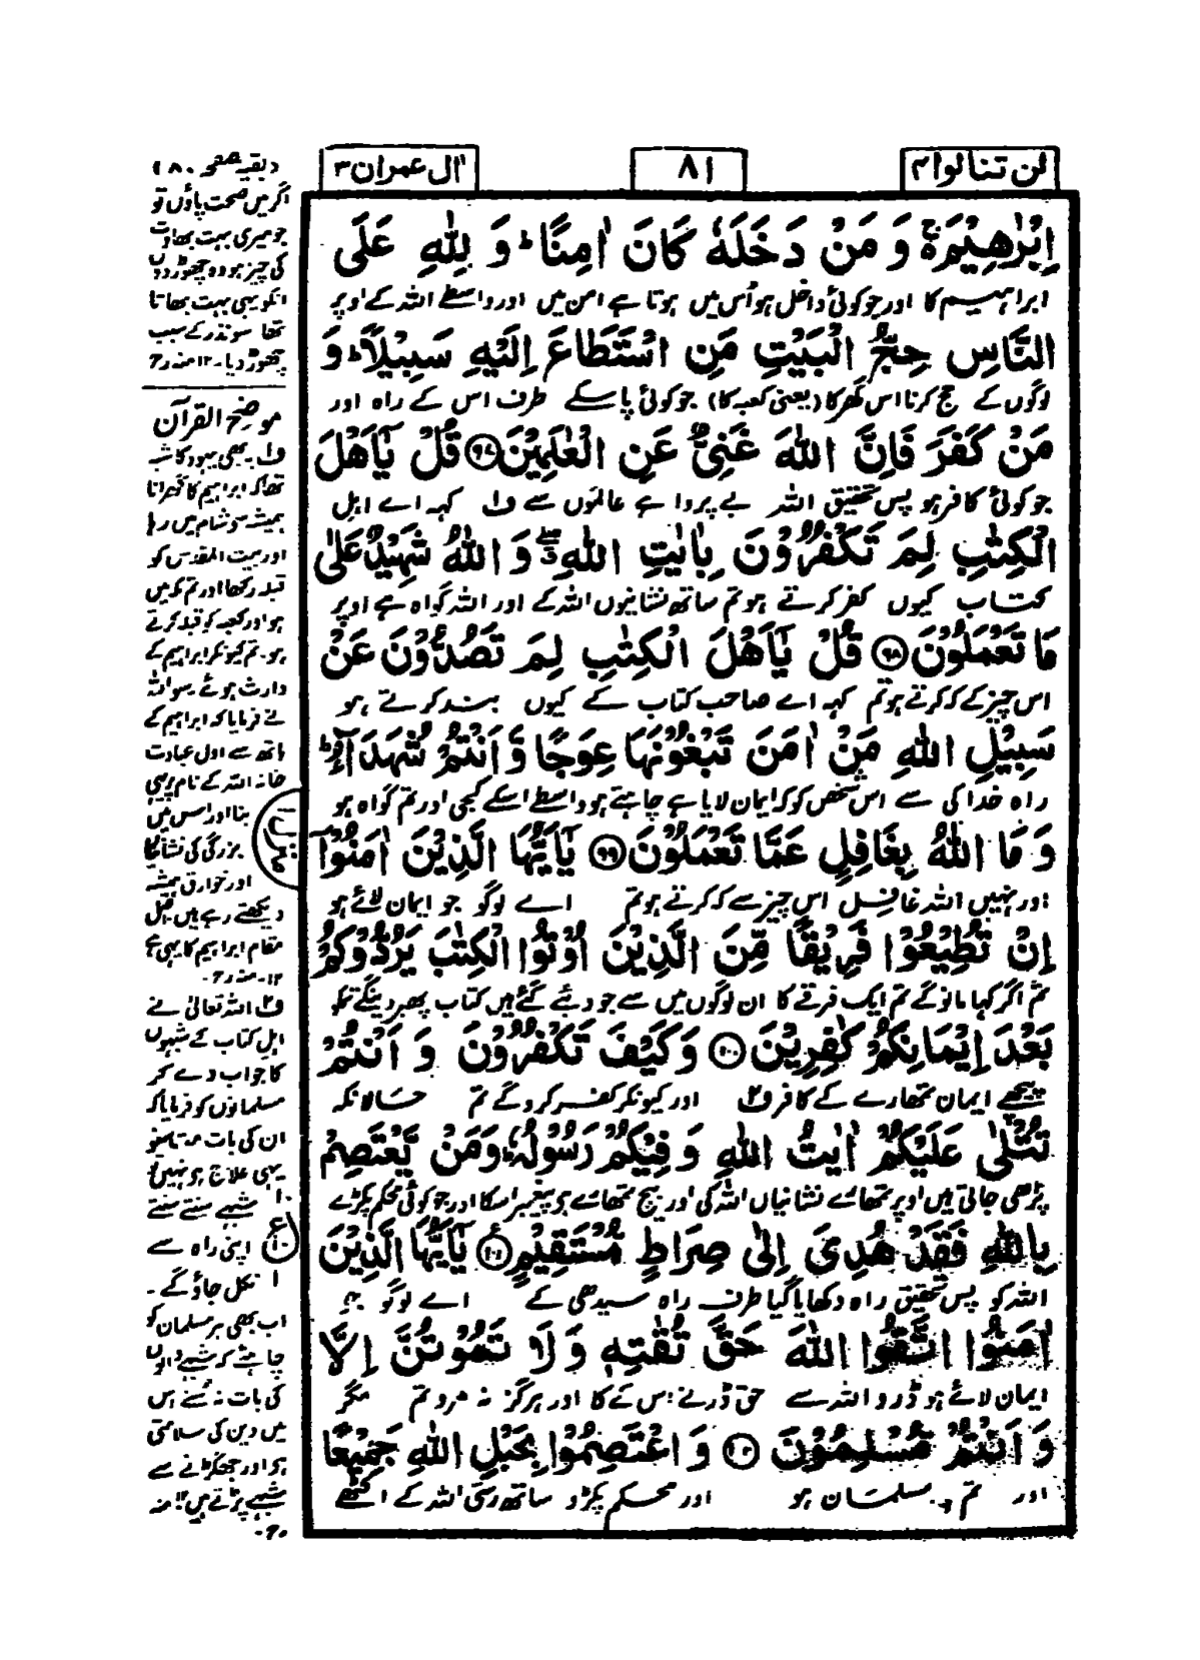 لن تنالوا ۴
۸۱
اٰل عمران ۳
اِبْرٰهِيْمَ ۚ وَ مَنْ دَخَلَهٗ كَانَ اٰمِنًا ؕ وَ لِلّٰهِ عَلَى
ابراہیم کا اور جو کوئی داخل ہو اُس میں ہوتا ہے امن میں اور واسطے اللہ کے اوپر
النَّاسِ حِجُّ الْبَيْتِ مَنِ اسْتَطَاعَ اِلَيْهِ سَبِيْلًا ؕ وَ
لوگوں کے حج کرنا اس گھر کا (یعنی کعبہ کا) جو کوئی پا سکے طرف اس کے راہ اور
مَنْ كَفَرَ فَاِنَّ اللّٰهَ غَنِىٌّ عَنِ الْعٰلَمِيْنَ ۹۷ قُلْ يٰۤاَهْلَ
جو کوئی کافر ہو پس تحقیق اللہ بے پروا ہے عالموں سے ف۱ کہہ اے اہل
الْكِتٰبِ لِمَ تَكْفُرُوْنَ بِاٰيٰتِ اللّٰهِ ۖ وَ اللّٰهُ شَهِيْدٌ عَلٰى
کتاب کیوں کفر کرتے ہو تم ساتھ نشانیوں اللہ کے اور اللہ گواہ ہے اوپر
مَا تَعْمَلُوْنَ ۹۸ قُلْ يٰۤاَهْلَ الْكِتٰبِ لِمَ تَصُدُّوْنَ عَنْ
اس چیز کے کہ کرتے ہو تم کہہ اے صاحب کتاب کے کیوں بند کرتے ہو
سَبِيْلِ اللّٰهِ مَنْ اٰمَنَ تَبْغُوْنَهَا عِوَجًا وَّ اَنْتُمْ شُهَدَآءُ ؕ
راہ خدا کی سے اس شخص کو کہ ایمان لایا ہے چاہتے ہو واسطے اسکے کجی اور تم گواہ ہو
وَ مَا اللّٰهُ بِغَافِلٍ عَمَّا تَعْمَلُوْنَ ۹۹ يٰۤاَيُّهَا الَّذِيْنَ اٰمَنُوْۤا
اور نہیں اللہ غافل اس چیز سے کہ کرتے ہو تم اے لوگو جو ایمان لائے ہو
اِنْ تُطِيْعُوْا فَرِيْقًا مِّنَ الَّذِيْنَ اُوْتُوا الْكِتٰبَ يَرُدُّوْكُمْ
تم اگر کہا مانو گے تم ایک فرقے کا ان لوگوں میں سے جو دیئے گئے ہیں کتاب پھیر دینگے تمکو
بَعْدَ اِيْمَانِكُمْ كٰفِرِيْنَ ۱۰۰ وَ كَيْفَ تَكْفُرُوْنَ وَ اَنْتُمْ
پیچھے ایمان تمھارے کے کافر ف۲ اور کیونکر کفر کرو گے تم حالانکہ
تُتْلٰى عَلَيْكُمْ اٰيٰتُ اللّٰهِ وَ فِيْكُمْ رَسُوْلُهٗ ؕ وَ مَنْ يَّعْتَصِمْ
پڑھی جاتی ہیں اوپر تمھارے نشانیاں اللہ کی اور بیچ تمھارے ہے پیغمبر اسکا اور جو کوئی محکم پکڑے
بِاللّٰهِ فَقَدْ هُدِىَ اِلٰى صِرَاطٍ مُّسْتَقِيْمٍ ۱۰۱ يٰۤاَيُّهَا الَّذِيْنَ
اللہ کو پس تحقیق راہ دکھایا گیا طرف راہ سیدھی کے اے لوگو جو
اٰمَنُوا اتَّقُوا اللّٰهَ حَقَّ تُقٰتِهٖ وَ لَا تَمُوْتُنَّ اِلَّا
ایمان لائے ہو ڈرو اللہ سے حق ڈرنے اس کے کا اور ہرگز نہ مرو تم مگر
وَ اَنْتُمْ مُّسْلِمُوْنَ ۱۰۲ وَ اعْتَصِمُوْا بِحَبْلِ اللّٰهِ جَمِيْعًا
اور تم مسلمان ہو اور محکم پکڑو ساتھ رسی اللہ کے اکٹھے
(بقیہ صفحہ ۸۰)
اگر میں صحت پاؤں تو
جو میری بہت بھاوت
کی چیز ہو وہ چھوڑ دوں
انکو یہی بہت بھاتا
تھا سو نذر کے سبب
چھوڑ دیا۔ ۱۲ منہ رح
موضح القرآن
ف۱ یہ بھی یہود کا شبہ
تھا کہ ابراہیم کا گھرانا
ہمیشہ سو شام میں رہا
اور بیت المقدس کو
قبلہ رکھا اور تم مکہ میں
ہو اور کعبہ کو قبلہ کرتے
ہو۔ تم کیونکر ابراہیم کے
وارث ہوئے سو اللہ
نے فرمایا کہ ابراہیم کے
ہاتھ سے اول عبادت
خانہ اللہ کے نام پر یہی
بنا اور اس میں
بزرگی کی نشانیاں
اور خوارق ہمیشہ
دیکھتے رہے ہیں اصل
مقام ابراہیم کا یہی ہے
۱۲۔ منہ رح۔
ف۲ اللہ تعالیٰ نے
اہل کتاب کے شبہوں
کا جواب دے کر
مسلمانوں کو فرمایا کہ
ان کی بات مت سنو
یہی علاج ہے نہیں تو
شبہے سنتے سنتے
اپنی راہ سے
نکل جاؤ گے۔
اب بھی ہر مسلمان کو
چاہئے کہ شبہے والوں
کی بات نہ سُنے اس
میں دین کی سلامتی
ہے اور جھگڑنے سے
شبہے پڑتے ہیں ۱۲ منہ
رح۔
ع
۱۰